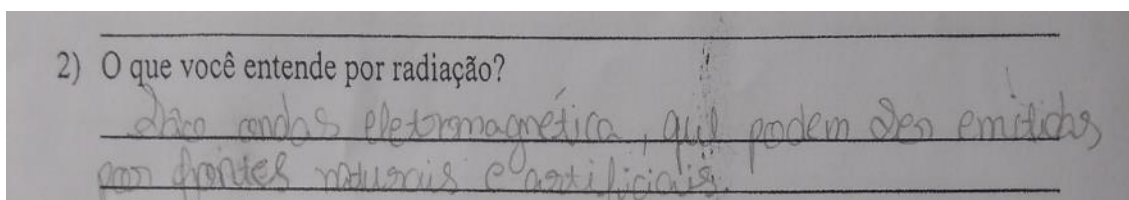 2) O que você entende por radiação?
São ondas eletromagnética, que podem ser emitidas
por fontes naturais e artificiais.